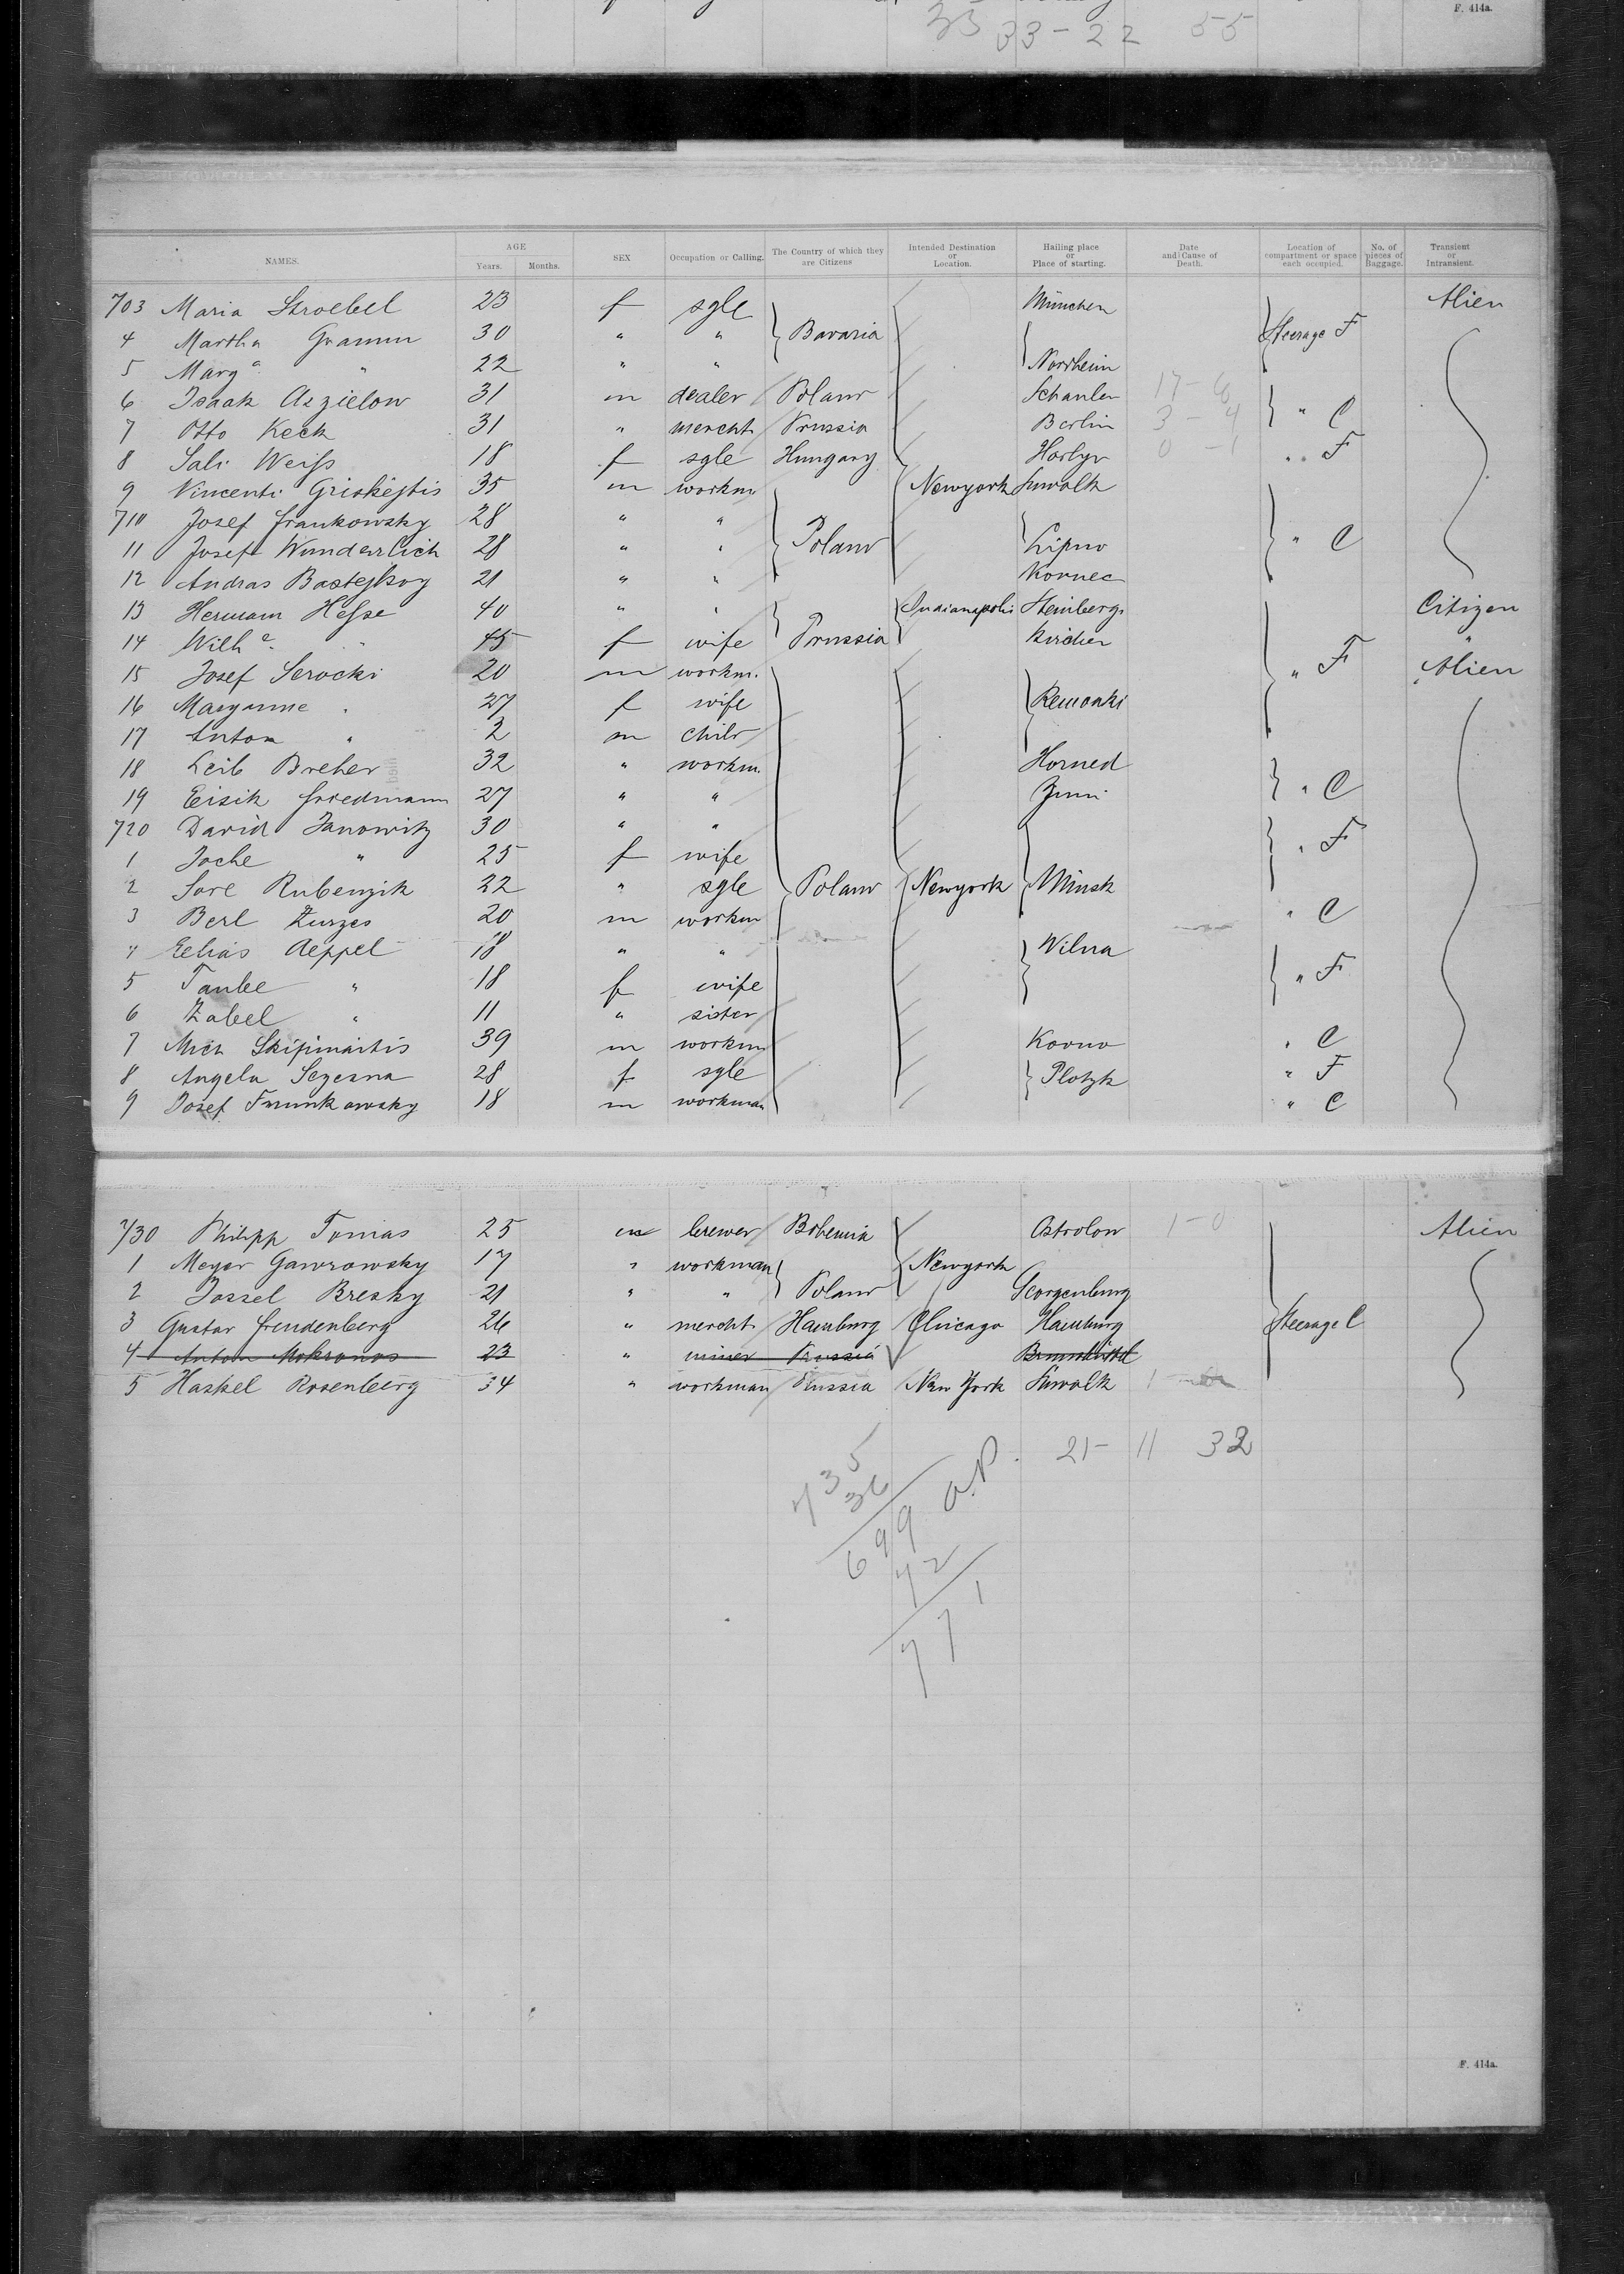 33 33-22 55
F. 414a.
NAMES. AGE Years. Months. SEX Occupation or Calling. The Country of which they are Citizens Intended Destination or Location. Hailing place or Place of starting. Date and Cause of Death. Location of compartment or space each occupied. No. of pieces of Baggage. Transient or Intransient.
703 Maria Stroebel 23 f sgle München Alien
4 Martha Gramm 30 " " Bavaria Steerage F
5 Marga " 22 " " Nordheim
6 Isaak Aszielow 31 m dealer Poland Schaulen 17-6
7 Otto Keck 31 " mercht Prussia Berlin 3-4 " C
8 Sali Weiss 18 f sgle Hungary 0-1 " F
9 Vincenti Griskejtis 35 m workm Newyork Suwalk
710 Josef Frankowsky 28 " "
11 Josef Wunderlich 28 " " Poland Lipno " C
12 Andras 21 " "
13 Hermann Hesse 40 " " Indianapolis Steinbergs Citizen
14 Wilha " 45 f wife Prussia kirchen "
15 Josef Serocki 20 m workm. " F Alien
16 Maryanne " 27 f wife
17 Anton " 2 m child
18 Leib Breher 32 " workm.
19 Eisik Friedmann 27 " " " C
720 David Janowitz 30 " " " F
1 Joche " 25 f wife
2 Sore Rubenzik 22 " sgle Poland Newyork Minsk
3 Berl Kurzes 20 m workm " C
4 Eelias Aeppel 18 " " Wilna
5 Taube " 18 f wife " F
6 Zabel " 11 " sister
7 Mich Skipinaitis 39 m workm Kovno " C
8 Angela Sezesna 28 f sgle Plotzk " F
9 Josef 18 m workman " C
730 Philipp Tomas 25 m brewer Bohemia Ostrolow 1-0 Alien
1 Meyer Gawrowsky 17 " workman Newyork
2 Jossel Bresky 21 " " Poland Georgenburg
3 Gustav Freudenberg 26 " mercht Hamburg Chicago Hamburg Steerage C
4 Anton Mokronos 23 " miner Prussia
5 Haskel Rosenberg 34 " workman Russia New York Suwalk 1
21- 11 32
735
36
699 a.P.
72
771
F. 414a.